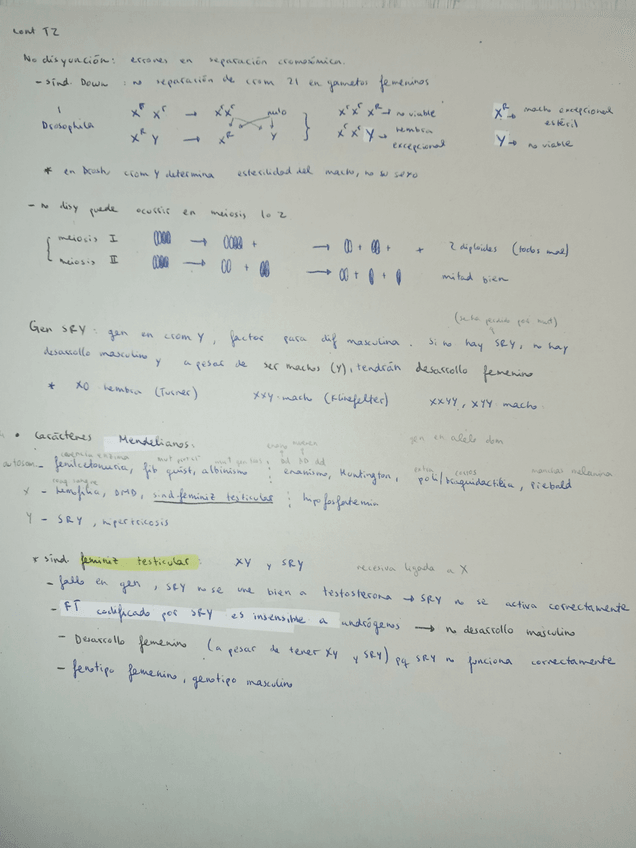 cont T2
No disyunción: errores en separación cromosómica.
- sínd. Down: no separación de crom 21 en gametos femeninos
Drosophila
X^R X^r → X^r X^r nulo } X^r X^r X^R → no viable X^R → macho excepcional estéril
X^R Y → X^R Y X^r X^r Y → hembra excepcional Y → no viable
* en Drosph crom Y determina esterilidad del macho, no su sexo
- no disy puede ocurrir en meiosis 1 o 2
meiosis I → + → + + 2 diploides (todos mal)
meiosis II → + → + + mitad bien
Gen SRY: gen en crom Y, factor para dif masculina. Si no hay SRY, no hay
desarrollo masculino y a pesar de ser machos (Y), tendrán desarrollo femenino
* XO hembra (Turner) XXY macho (Klinefelter) XXYY, XYY macho.
• Caracteres Mendelianos: gen en alelo dom
autosom - fenilcetonuria, fib quist, albinismo ; enanismo, Huntington, poli/braquidactilia, piebald
X - hemofilia, DMD, sínd. feminiz testicular ; hipofosfatemia
Y - SRY, hipertricosis
* sínd. feminiz testicular: XY y SRY recesiva ligada a X
- fallo en gen, SRY no se une bien a testosterona → SRY no se activa correctamente
- FT codificado por SRY es insensible a andrógenos → no desarrollo masculino
- Desarrollo femenino (a pesar de tener XY y SRY) pq SRY no funciona correctamente
- fenotipo femenino, genotipo masculino